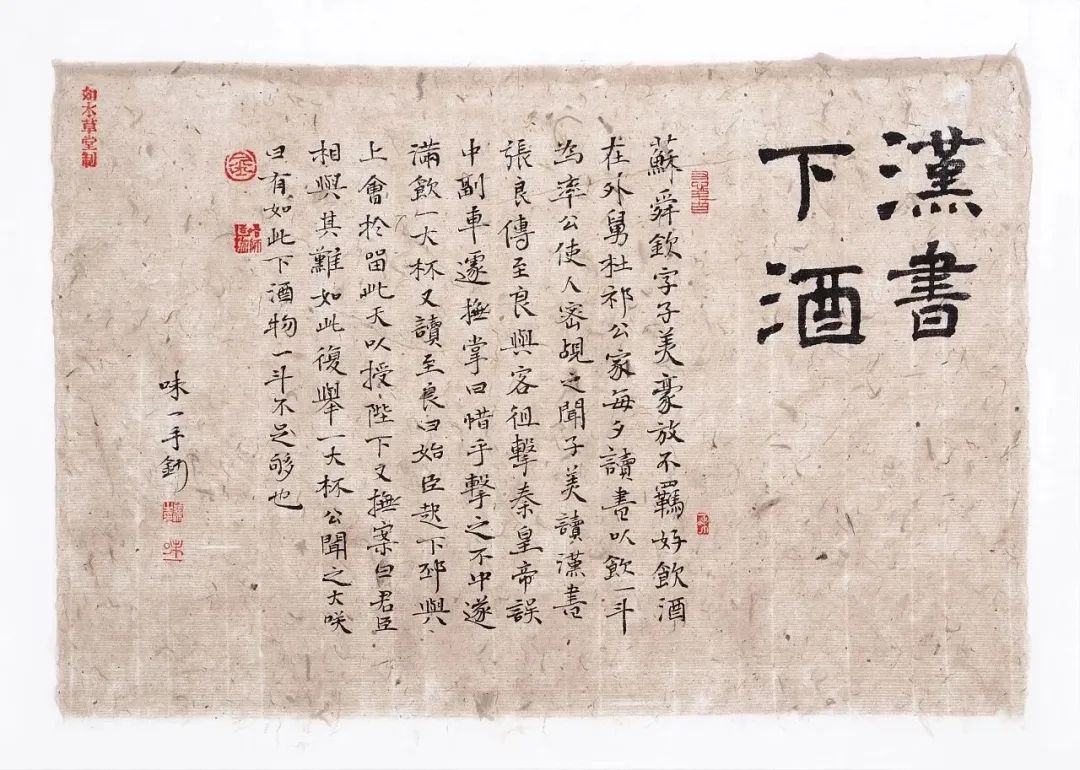 漢書
下酒
蘇舜欽字子美豪放不羈好飲酒
在外舅杜祁公家每夕讀書以飲一斗
為率公使人密覘之聞子美讀漢書
張良傳至良與客狙擊秦皇帝誤
中副車遽撫掌曰惜乎擊之不中遂
滿飲一大杯又讀至良曰始臣起下邳與
上會於留此天以授陛下又撫案曰君臣
相與其難如此復舉一大杯公聞之大咲
曰有如此下酒物一斗不足够也
味一手鈔
草堂制